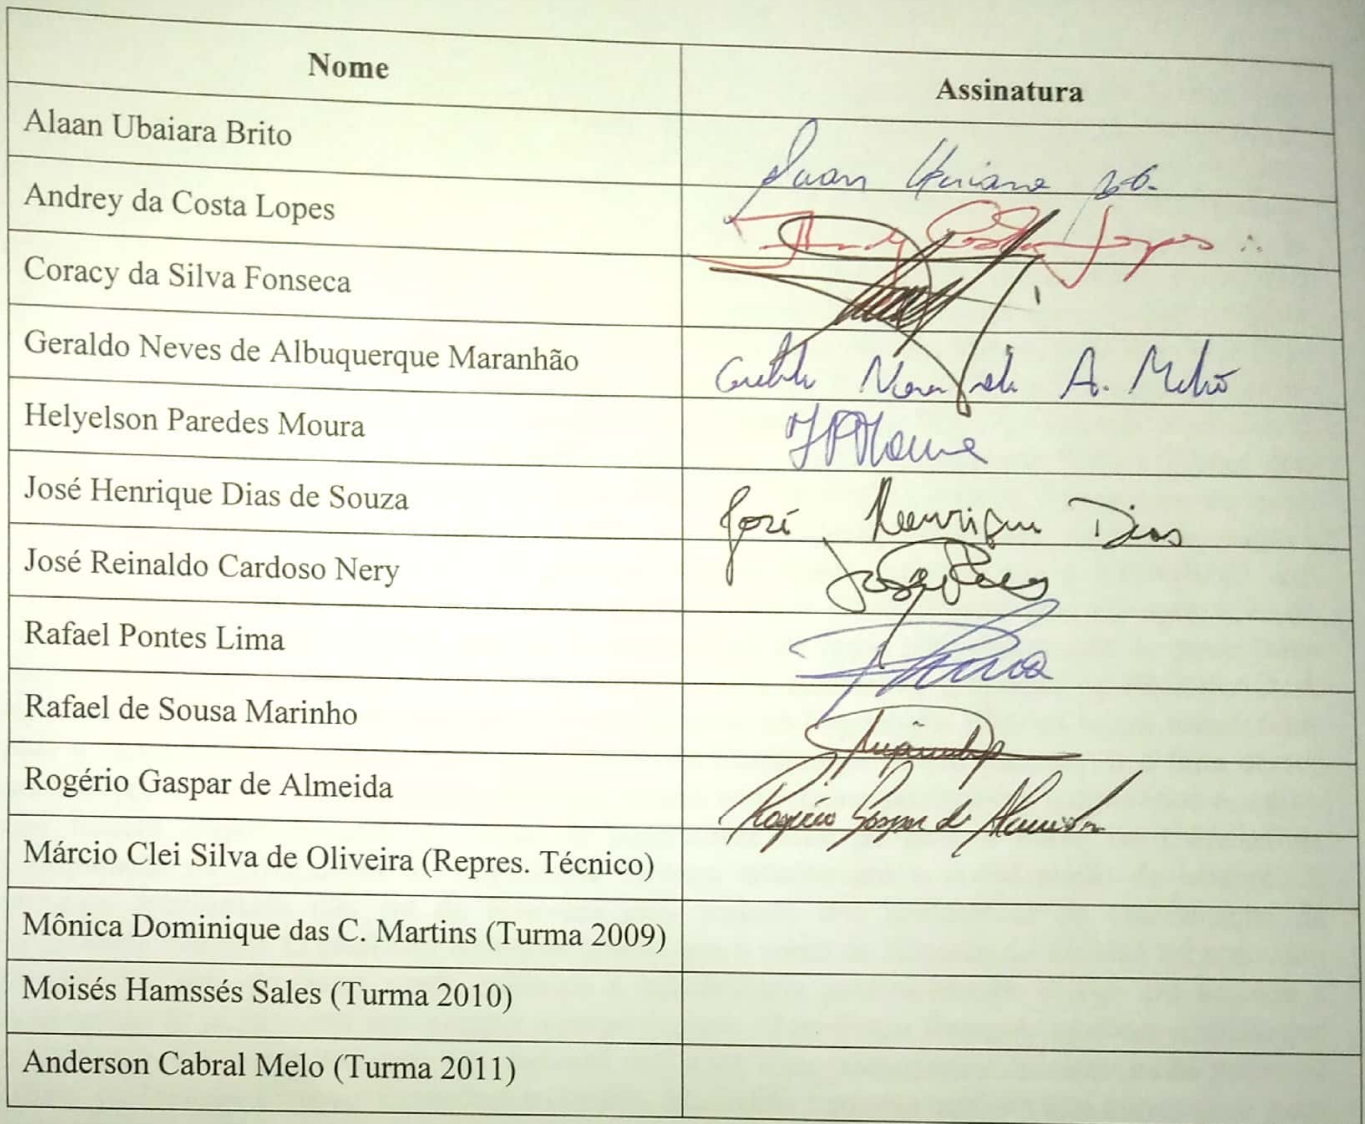 Nome Assinatura
Alaan Ubaiara Brito
Andrey da Costa Lopes Costa Lopes
Coracy da Silva Fonseca
Geraldo Neves de Albuquerque Maranhão A.
Helyelson Paredes Moura HPMoura
José Henrique Dias de Souza José Henrique Dias
José Reinaldo Cardoso Nery
Rafael Pontes Lima
Rafael de Sousa Marinho
Rogério Gaspar de Almeida Rogério Gaspar de Almeida
Márcio Clei Silva de Oliveira (Repres. Técnico)
Mônica Dominique das C. Martins (Turma 2009)
Moisés Hamssés Sales (Turma 2010)
Anderson Cabral Melo (Turma 2011)